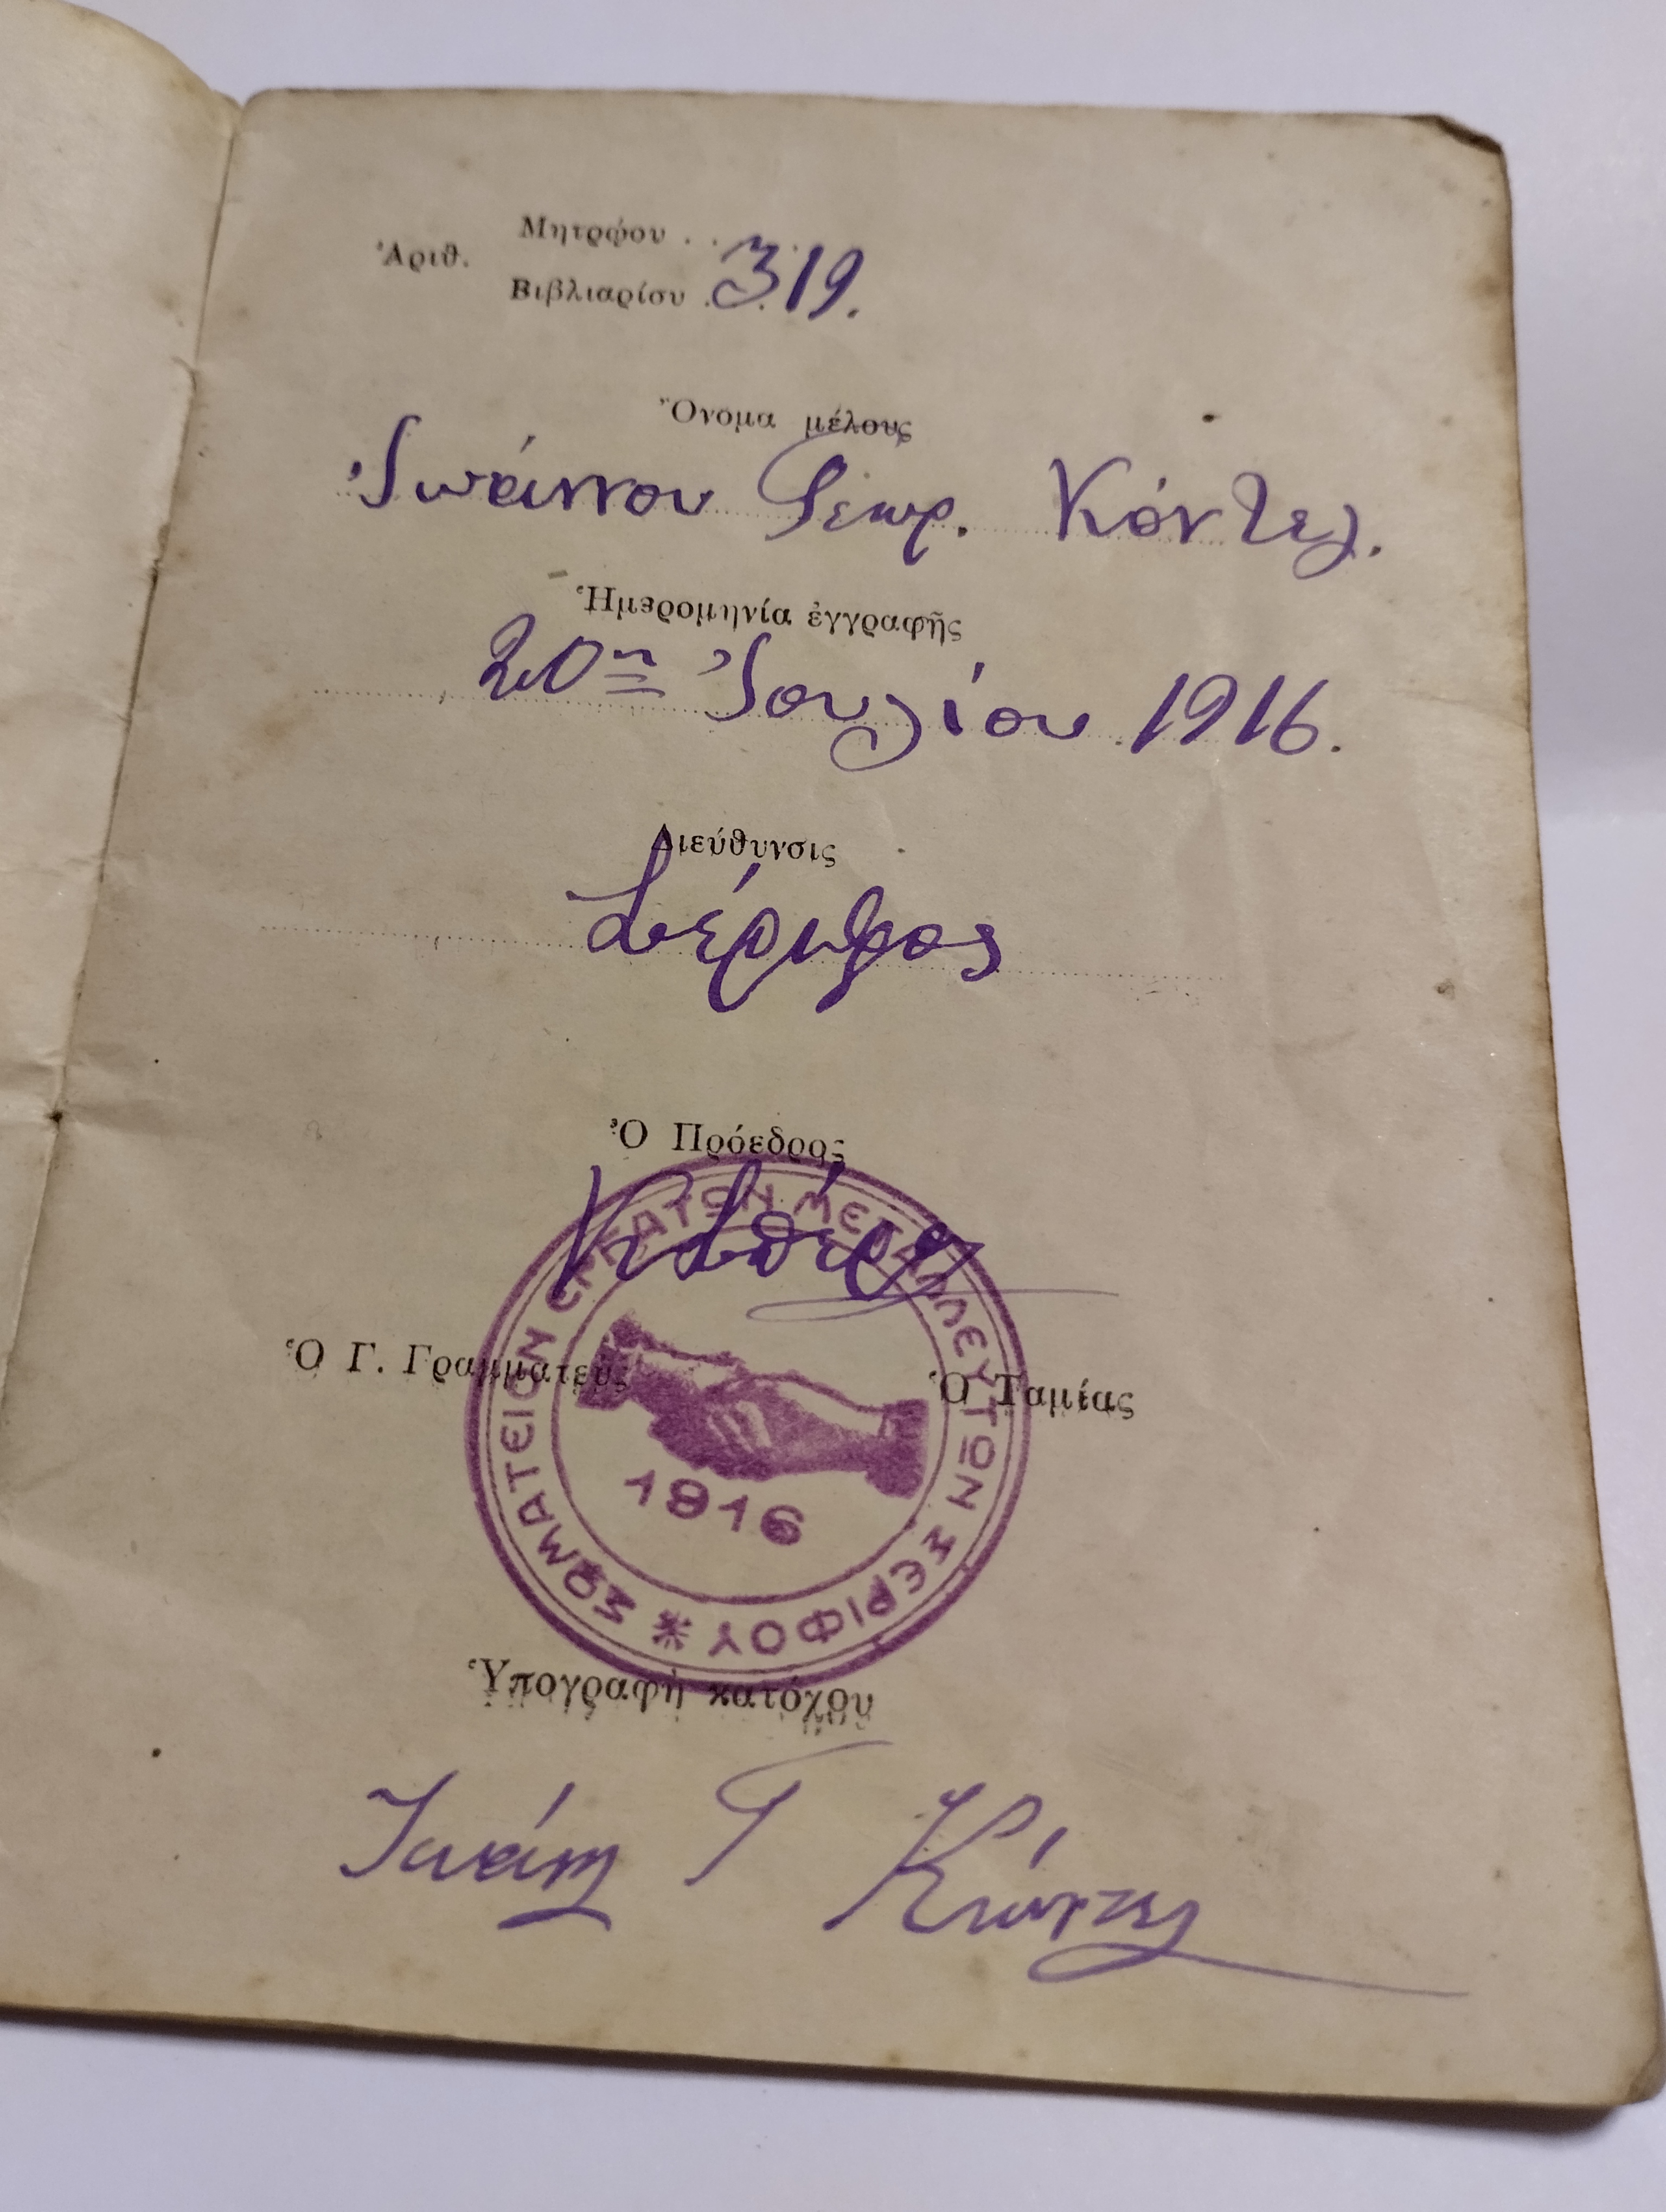 Μητρῴου . . .
Ἀριθ.
Βιβλιαρίου . 319.
Ὄνομα μέλους
Ἰωάννου Γεωρ. Κόντελ.
Ἡμερομηνία ἐγγραφῆς
20ῃ Ἰουλίου 1916.
Διεύθυνσις
Σέριφος
Ὁ Πρόεδρος
Κ Σπέρας
ΣΩΜΑΤΕΙΟΝ ΕΡΓΑΤΩΝ ΜΕΤΑΛΛΕΥΤΩΝ ΣΕΡΙΦΟΥ
Ὁ Γ. Γραμματεὺς
Ὁ Ταμίας
1916
Ὑπογραφὴ κατόχου
Ἰωάνης Γ Κόντελ